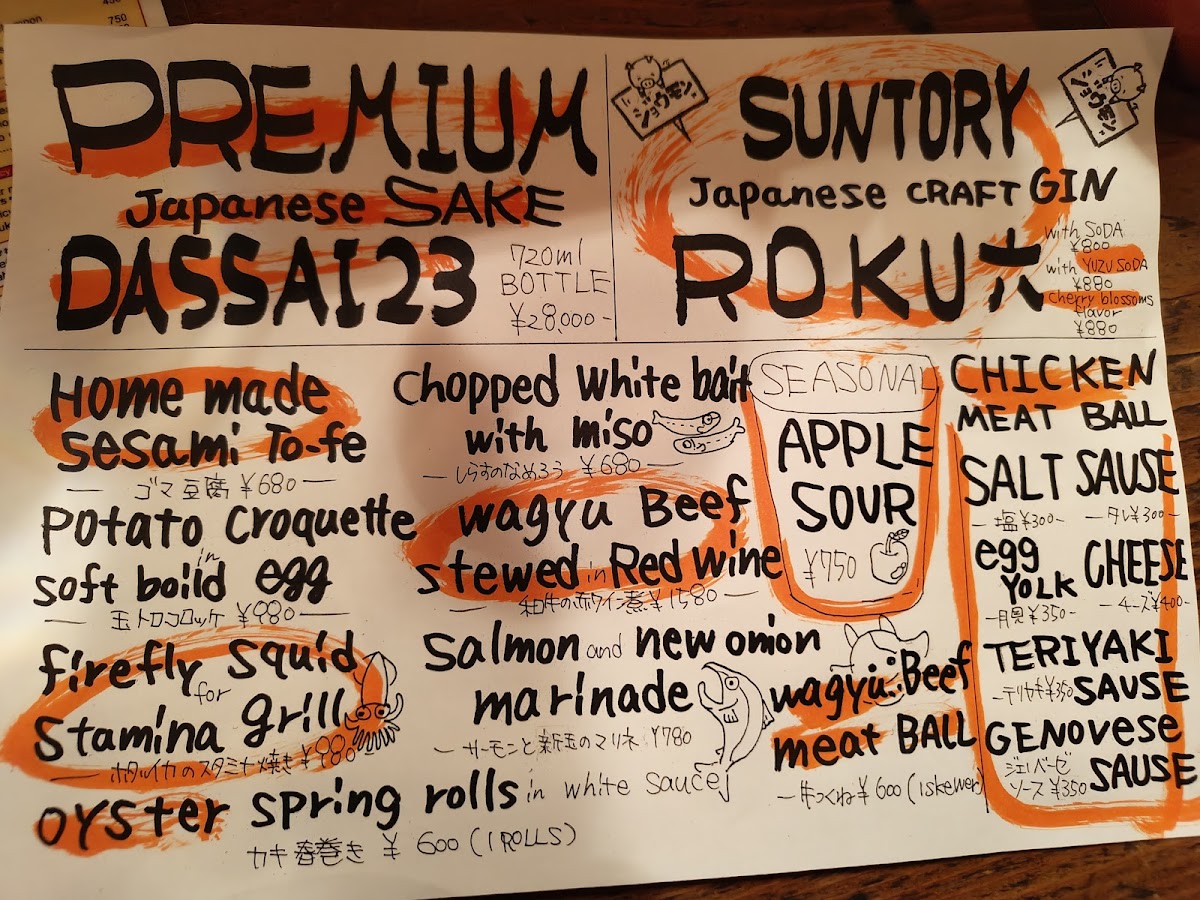 PREMIUM
Japanese SAKE
DASSAI 23
720ml
BOTTLE
¥28,000-
SUNTORY
Japanese CRAFT GIN
ROKU 六
with SODA
¥800
with YUZU SODA
¥880
Cherry blossoms
flavor
¥880
Home made
sesami To-fe
ゴマ豆腐 ¥680
Potato Croquette
in
soft boild egg
玉トロコロッケ ¥980
firefly squid
for
stamina grill
ホタルイカのスタミナ焼き ¥980
oyster spring rolls in white sauce
カキ春巻き ¥600 (1ROLLS)
Chopped white bait
with miso
しらすのなめろう ¥680
wagyu Beef
stewed in Red wine
和牛の赤ワイン煮 ¥1580
salmon and new onion
marinade
サーモンと新玉のマリネ ¥780
SEASONAL
APPLE
SOUR
¥750
wagyu Beef
meat BALL
牛つくね ¥600 (1skewer)
CHICKEN
MEAT BALL
SALT SAUSE
塩 ¥300- タレ ¥300-
egg
YOLK CHEESE
月見 ¥350- チーズ ¥400-
TERIYAKI
テリヤキ ¥350 SAUSE
GENOVESE
ジェノベーゼ
ソース ¥350 SAUSE
750